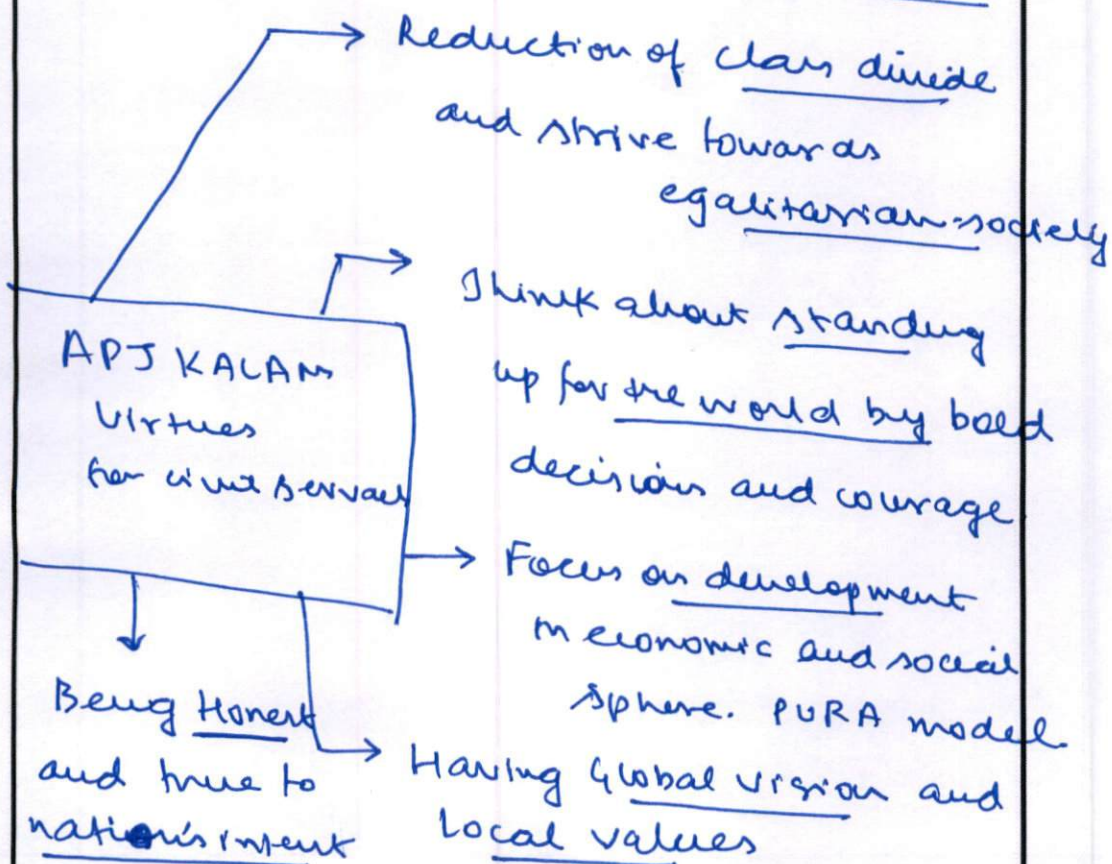 Reduction of class divide
and strive towards
egalitarian society
Think about standing
up for the world by bold
decisions and courage
APJ KALAM
Virtues
for civil servant
Focus on development
in economic and social
sphere. PURA model.
Being Honest
and true to
nation's intent
Having Global vision and
Local values